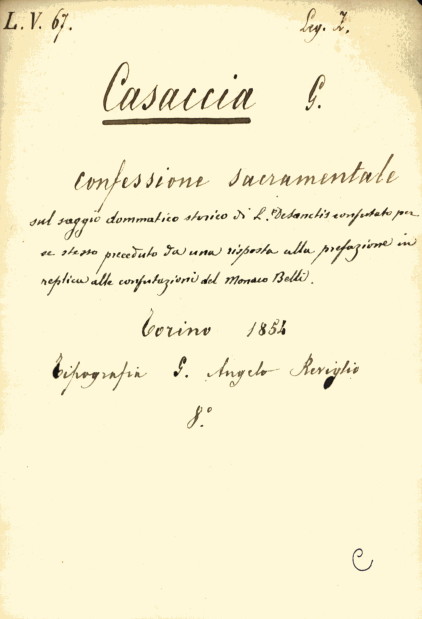 L. V. 67.
Leg. Z.
Casaccia G.
Confessione sacramentale
sul saggio dommatico storico di L. Desanctis confutato per
se stesso preceduto da una risposta alla prefazione in
replica alle confutazioni del Monaco Belli.
Torino 1854
Tipografia G. Angelo Reviglio
8.º
C